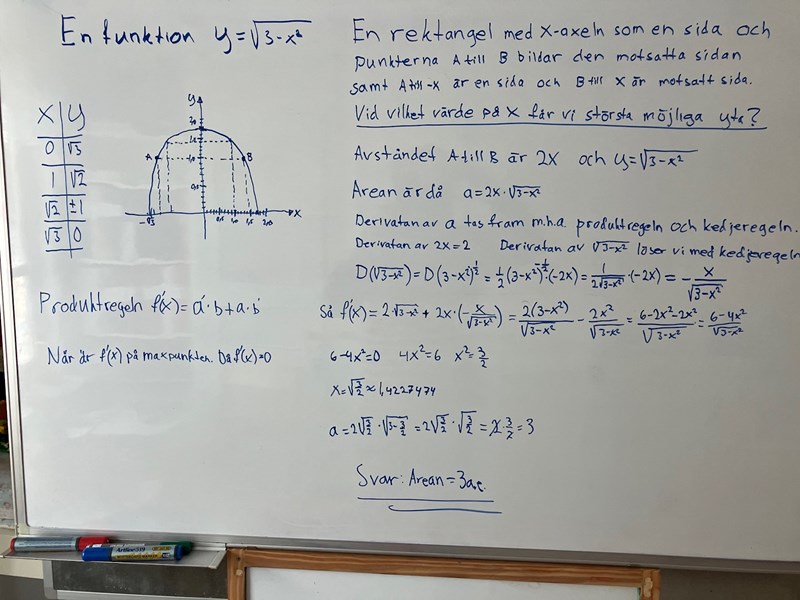 En funktion y=√(3-x²)
x | y
0 | √3
1 | √2
√2 | ±1
√3 | 0
y
A
B
-√3
0,5
1,0
1,5
2,0
x
Produktregeln f'(x)=a'·b+a·b'
När är f'(x) på maxpunkten. Då f'(x)=0
En rektangel med x-axeln som en sida och
punkterna A till B bildar den motsatta sidan
samt A till -x är en sida och B till x är motsatt sida.
Vid vilket värde på x får vi största möjliga yta?
Avståndet A till B är 2x och y=√(3-x²)
Arean är då a=2x·√(3-x²)
Derivatan av a tas fram m.h.a. produktregeln och kedjeregeln.
Derivatan av 2x=2 Derivatan av √(3-x²) löser vi med kedjeregeln
D(√(3-x²))=D(3-x²)^½=½(3-x²)^-½·(-2x)=1/(2√(3-x²))·(-2x)=-x/√(3-x²)
Så f'(x)=2·√(3-x²)+2x·(-x/√(3-x²))=2(3-x²)/√(3-x²)-2x²/√(3-x²)=(6-2x²-2x²)/√(3-x²)=(6-4x²)/√(3-x²)
6-4x²=0 4x²=6 x²=3/2
x=√(3/2)≈1,4227474
a=2√(3/2)·√(3-3/2)=2√(3/2)·√(3/2)=2·3/2=3
Svar: Arean=3a.e.
Artline 519